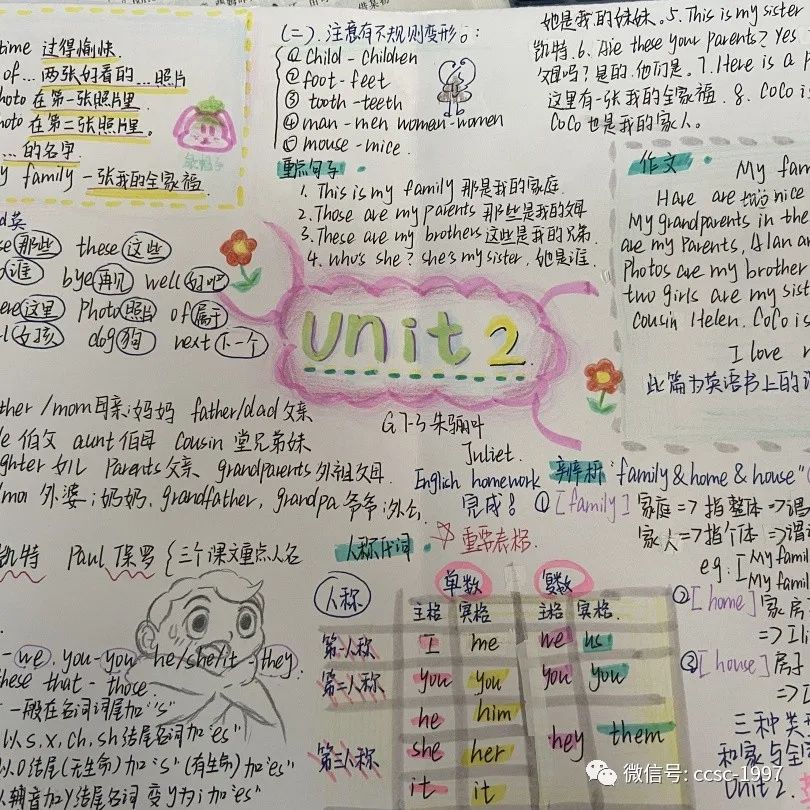 time 过得愉快
of...两张好看的...照片
photo 在第一张照片里
photo 在第二张照片里。
...的名字
family 一张我的全家福
(二). 注意有不规则变形。:
① child - children
② foot - feet
③ tooth - teeth
④ man - men women - women
⑤ mouse - mice.
重点句子
1. This is my family 那是我的家庭.
2. Those are my parents 那些是我的父母
3. These are my brothers 这些是我的兄弟.
4. who's she? she's my sister. 她是谁.
她是我的妹妹. 5. This is my sister
凯特. 6. Are these your parents? Yes
父母吗? 是的. 他们是. 7. Here is a
这里有一张我的全家福. 8. CoCo is
CoCo 也是我的家人.
作文
My fam
Hare are two nice
My grandparents in the
are my Parents, Alan a
Photos are my brother
two girls are my sist
cousin Helen. CoCo is
I love
此篇为英语书上的
那些 these 这些
谁 bye 再见 well 好吧
这里 Photo 照片 of 属于
女孩 dog 狗 next 下一个
unit 2
G7-5 朱骊叶
Juliet.
English homework
完成!
ther / mom 母亲;妈妈 father/dad 父亲
le 伯父 aunt 伯母 cousin 堂兄弟妹
ghter 女儿 Parents 父亲 grandparents 外祖父母
外婆;奶奶. grandfather, grandpa 爷爷;外公
凯特 Paul 保罗 {三个课文重点人名
辨析 "family & home & house"
① [family] 家庭 => 指整体 =>谓
家人 =>指个体 =>谓
eg: I My family
My family
② [home] 家
=> I li
③ [house] 房子
=> I
三种类
和家与全
Unit 2.
人称代词 重要表格.
人称 单数 复数
主格 宾格 主格 宾格.
第一人称 I me we us
第二人称 you you you you
he him
第三人称 she her hey them
it it
- we. you - you he/she/it - they
these that - those.
一般在名词词尾加 "s"
以 s, x, ch, sh 结尾名词加 "es"
以 O 结尾 (无生命) 加 "s" (有生命) 加 "es"
以辅音加 y 结尾名词 变 y 为 i 加 "es"
微信号: ccsc-1997